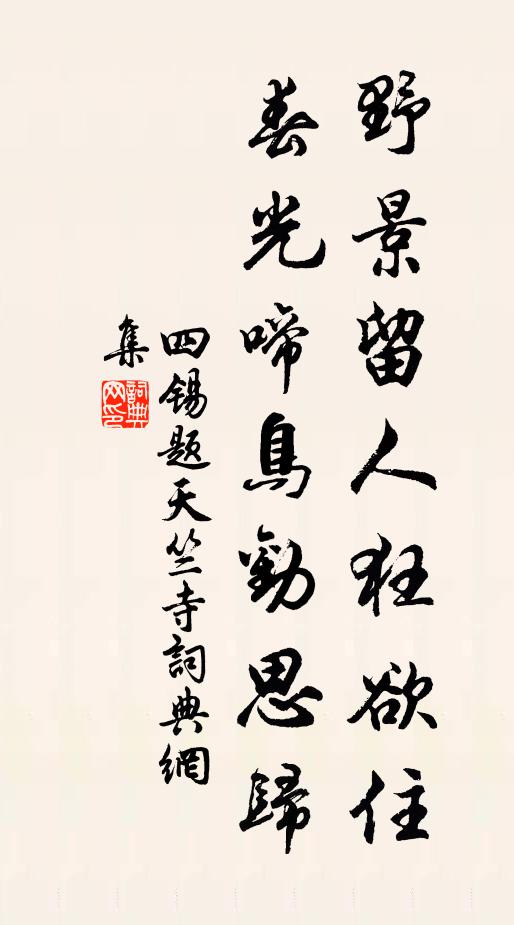 野景留人狂欲住
春光啼鳥勸思歸
四锡題天竺寺詞典網
集
詞典
网印